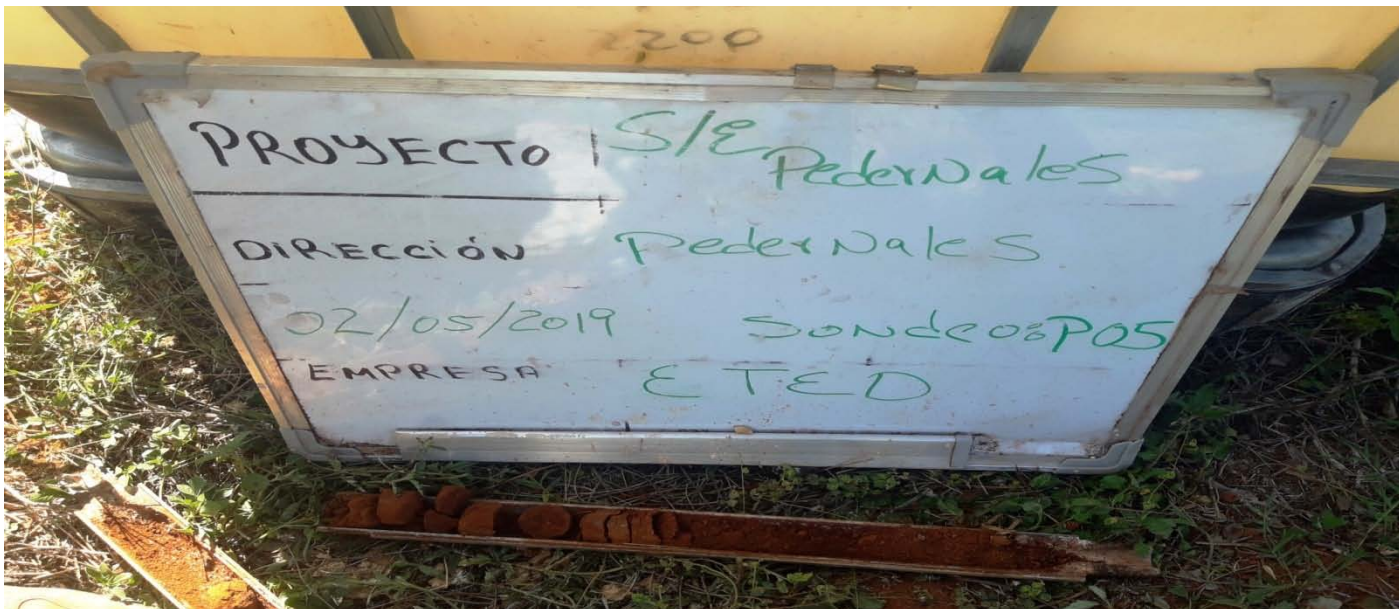 2200
PROYECTO S/E PederNaleS
DIRECCIÓN PederNaleS
02/05/2019 SONdeo:P05
EMPRESA ETED